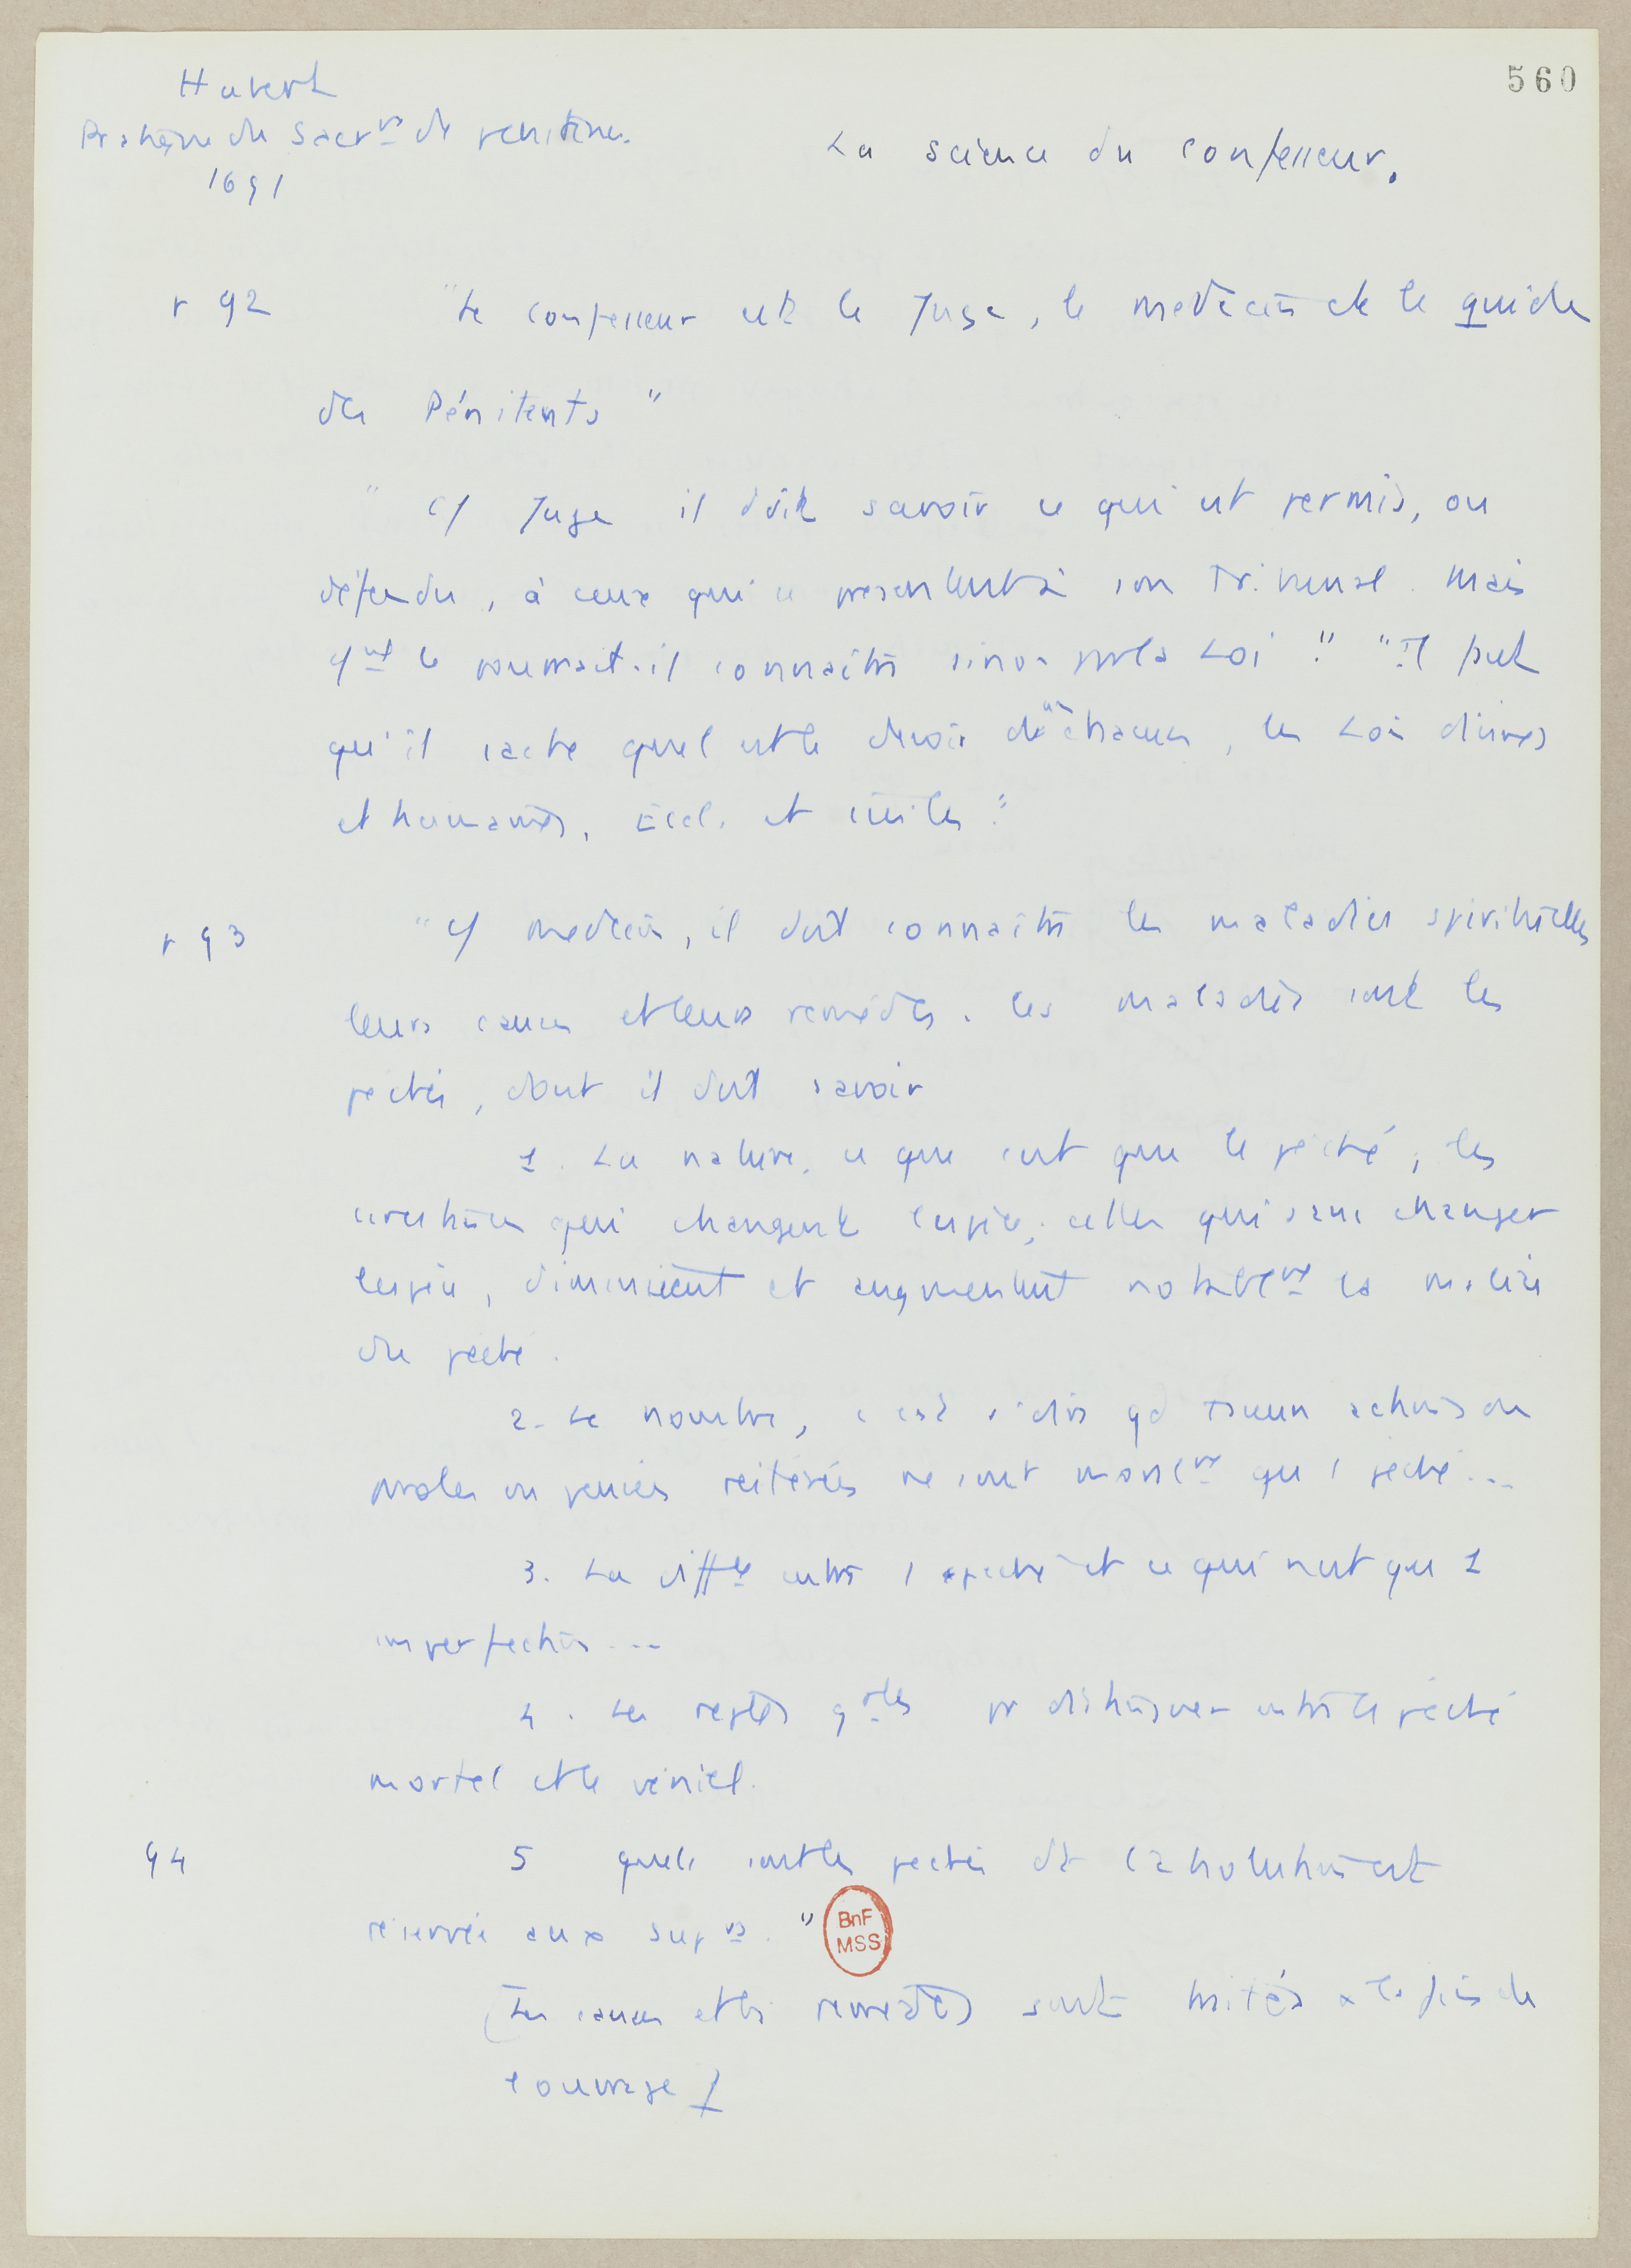 560
Habert
Pratique du Sacr^nt de penitence.
1691
La science du confesseur.
p 92 "Le confesseur est le Juge, le medecin et le guide
des Pénitents"
" cf Juge il doit savoir ce qui est permis, ou
défendu, à ceux qui se presentent à son Tribunal. Mais
c^nt le pourrait-il connaître sinon par la Loi". "Il faut
qu'il sache quel est le devoir de chacun, les Lois divines
et humaines, Eccl. et civiles."
p 93 "cf medecin, il doit connaître les maladies spirituelles
leurs causes et leurs remèdes. les maladies sont les
péchés, dont il doit savoir
1. La nature, ce que c'est que le péché, les
circ qui changent l'espèce, celles qui sans changer
l'espèce, diminuent et augmentent notabl^nt la malice
du péché.
2. Le nombre, c'est à dire qd plusieurs actions ou
paroles ou pensées reitérées ne sont moral^nt qu'1 péché...
3. La diff^ce entre 1 péché et ce qui n'est qu'1
imperfection...
4. Les regles g^ales pr distinguer entre le péché
mortel et le véniel.
94 5 quels sont les péchés dt l'absolution est
réservée aux sup^rs."
BnF
MSS
(Les causes et les remèdes sont traités à la fin de
l'ouvrage)